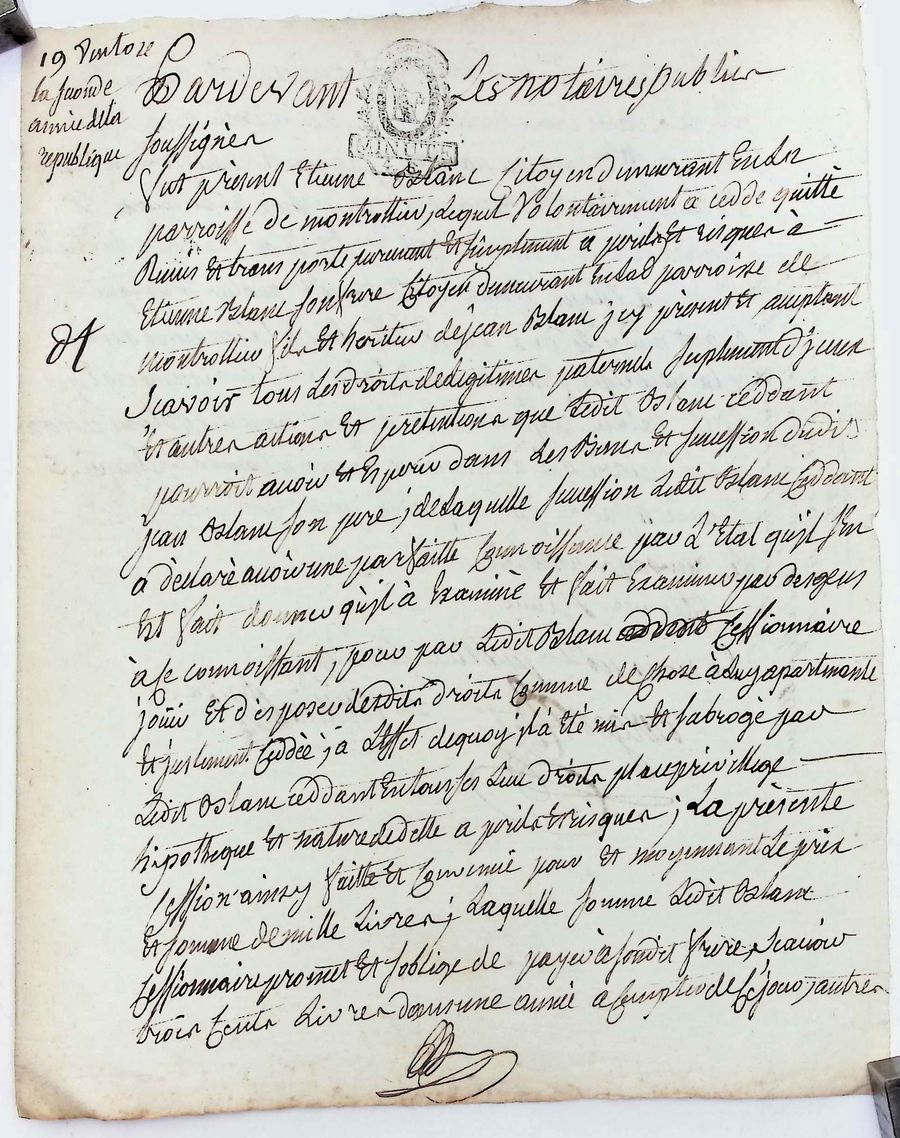 19 Ventose
la seconde
année de la
republique
Pardevant Les notaires publics
MINUTE
soussignés
fut présent Etienne Blanc Citoyen demeurant En La
parroisse de montrottier, Lequel Volontairement a cedde quitte
Remis Et transporte purement Et simplement a perils Et risques à
Etienne Blanc son frere Citoyen demeurant En lad parroisse de
montrottier fils Et heritier de jean Blanc jcy présent Et acceptant
Scavoir tous Les droits de Legitimes paternels suplement d'jceux
Et autres actions Et pretentions que Ledit Blanc ceddant
pourroit avoir Et Esperer dans Les Biens Et succession dudit
jean Blanc son pere ; de Laquelle succession Ledit Blanc Ceddant
a déclaré avoir une parfaitte Connoissance par L'Etat qu'jl s'En
Est fait donner qu'jl à Examiné Et fait Examiner par des gens
à Ce connoissant, pour par Ledit Blanc Cessionnaire
jouir Et disposer desdits droits Comme de Chose à Luy apartenante
Et justement Ceddée ; a L'Effet de quoy jl à été mis Et subrogé par
Ledit Blanc ceddant En tous ses Lieu droits place privillege
hipotheque Et nature de dette a perils Et risques ; La présente
Cession ainsy faitte Et Convenüe pour Et moyennant Le prix
Et somme de mille Livres ; Laquelle somme Ledit Blanc
Cessionnaire promet Et s'oblige de payer à sondit frere, Scavoir
trois Cents Livres dans une année a Compter de Ce jour, autres